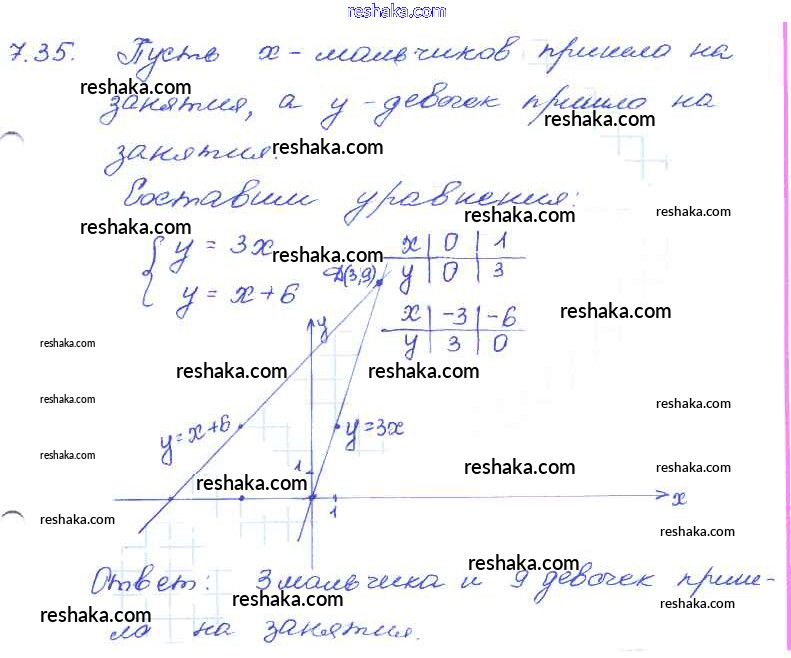 reshaka.com
7.35. Пусть x - мальчиков пришло на
reshaka.com
занятия, а y - девочек пришло на
reshaka.com
занятия.
reshaka.com
Составим уравнения:
reshaka.com
reshaka.com
reshaka.com
{ y = 3x
reshaka.com
x | 0 | 1
y | 0 | 3
A(3;9)
y = x+6
reshaka.com
x | -3 | -6
y | 3 | 0
y
reshaka.com
reshaka.com
reshaka.com
reshaka.com
reshaka.com
y=x+6
y=3x
reshaka.com
reshaka.com
1
reshaka.com
reshaka.com
reshaka.com
x
1
reshaka.com
reshaka.com
reshaka.com
Ответ: 3 мальчика и 9 девочек прише-
reshaka.com
reshaka.com
reshaka.com
ло на занятия.